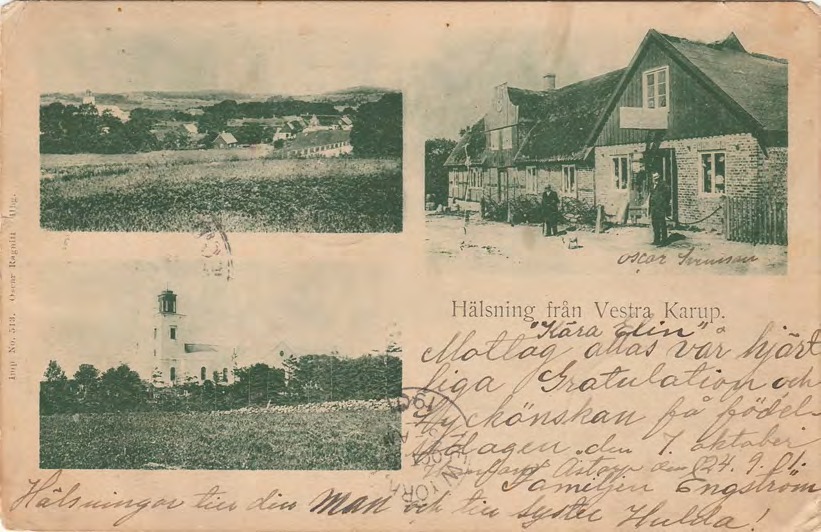 Imp. No. 513. Oscar Ragnitt Hbg.
Oscar Svensson
Hälsning från Vestra Karup.
"Kära Elin"
Mottag allas vår hjärt
liga Gratulation och
Lyckönskan få födel-
sedagen den 7 oktober
Åstorp den 24. 9. 01.
Familjen Engström
Hälsningar till din Man och till syster Hulda!
NEW YORK